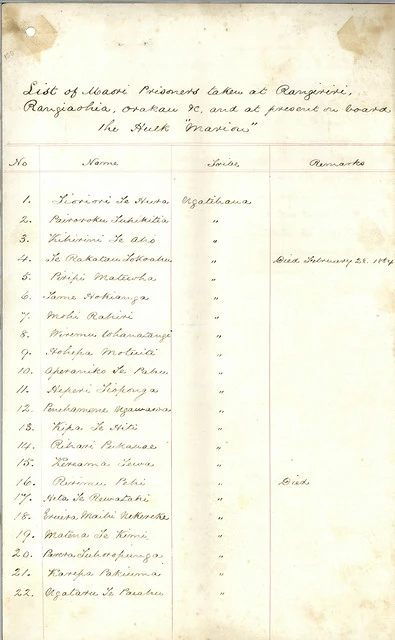 List of Maori Prisoners taken at Rangiriri,
Rangiaohia, Orakau &c, and at present on board
the Hulk "Marion"
No Name Tribe Remarks
1. Tioriori Te Hura Ngatihaua
2. Pairoroku Tuhikitia "
3. Kihirini Te Aho "
4. Te Rakatau " Died February 28. 1864
5. Piripi Matewha "
6. Tame Hokianga "
7. Mohi Rahiri "
8. Wiremu "
9. Hohepa Motuiti "
10. Aperaniko Te "
11. Heperi Tioponga "
12. Penehamene Ngawawa "
13. Kipa Te Hiti "
14. Rihari Pukauae "
15. Kereama Tewa "
16. Rerimu Pehi " Died
17. Hita Te Rewatahi "
18. Eruira Maihi Kekereke "
19. Matena Te Kimi "
20. "
21. Karepa Pakiuma "
22. Ngataru Te "